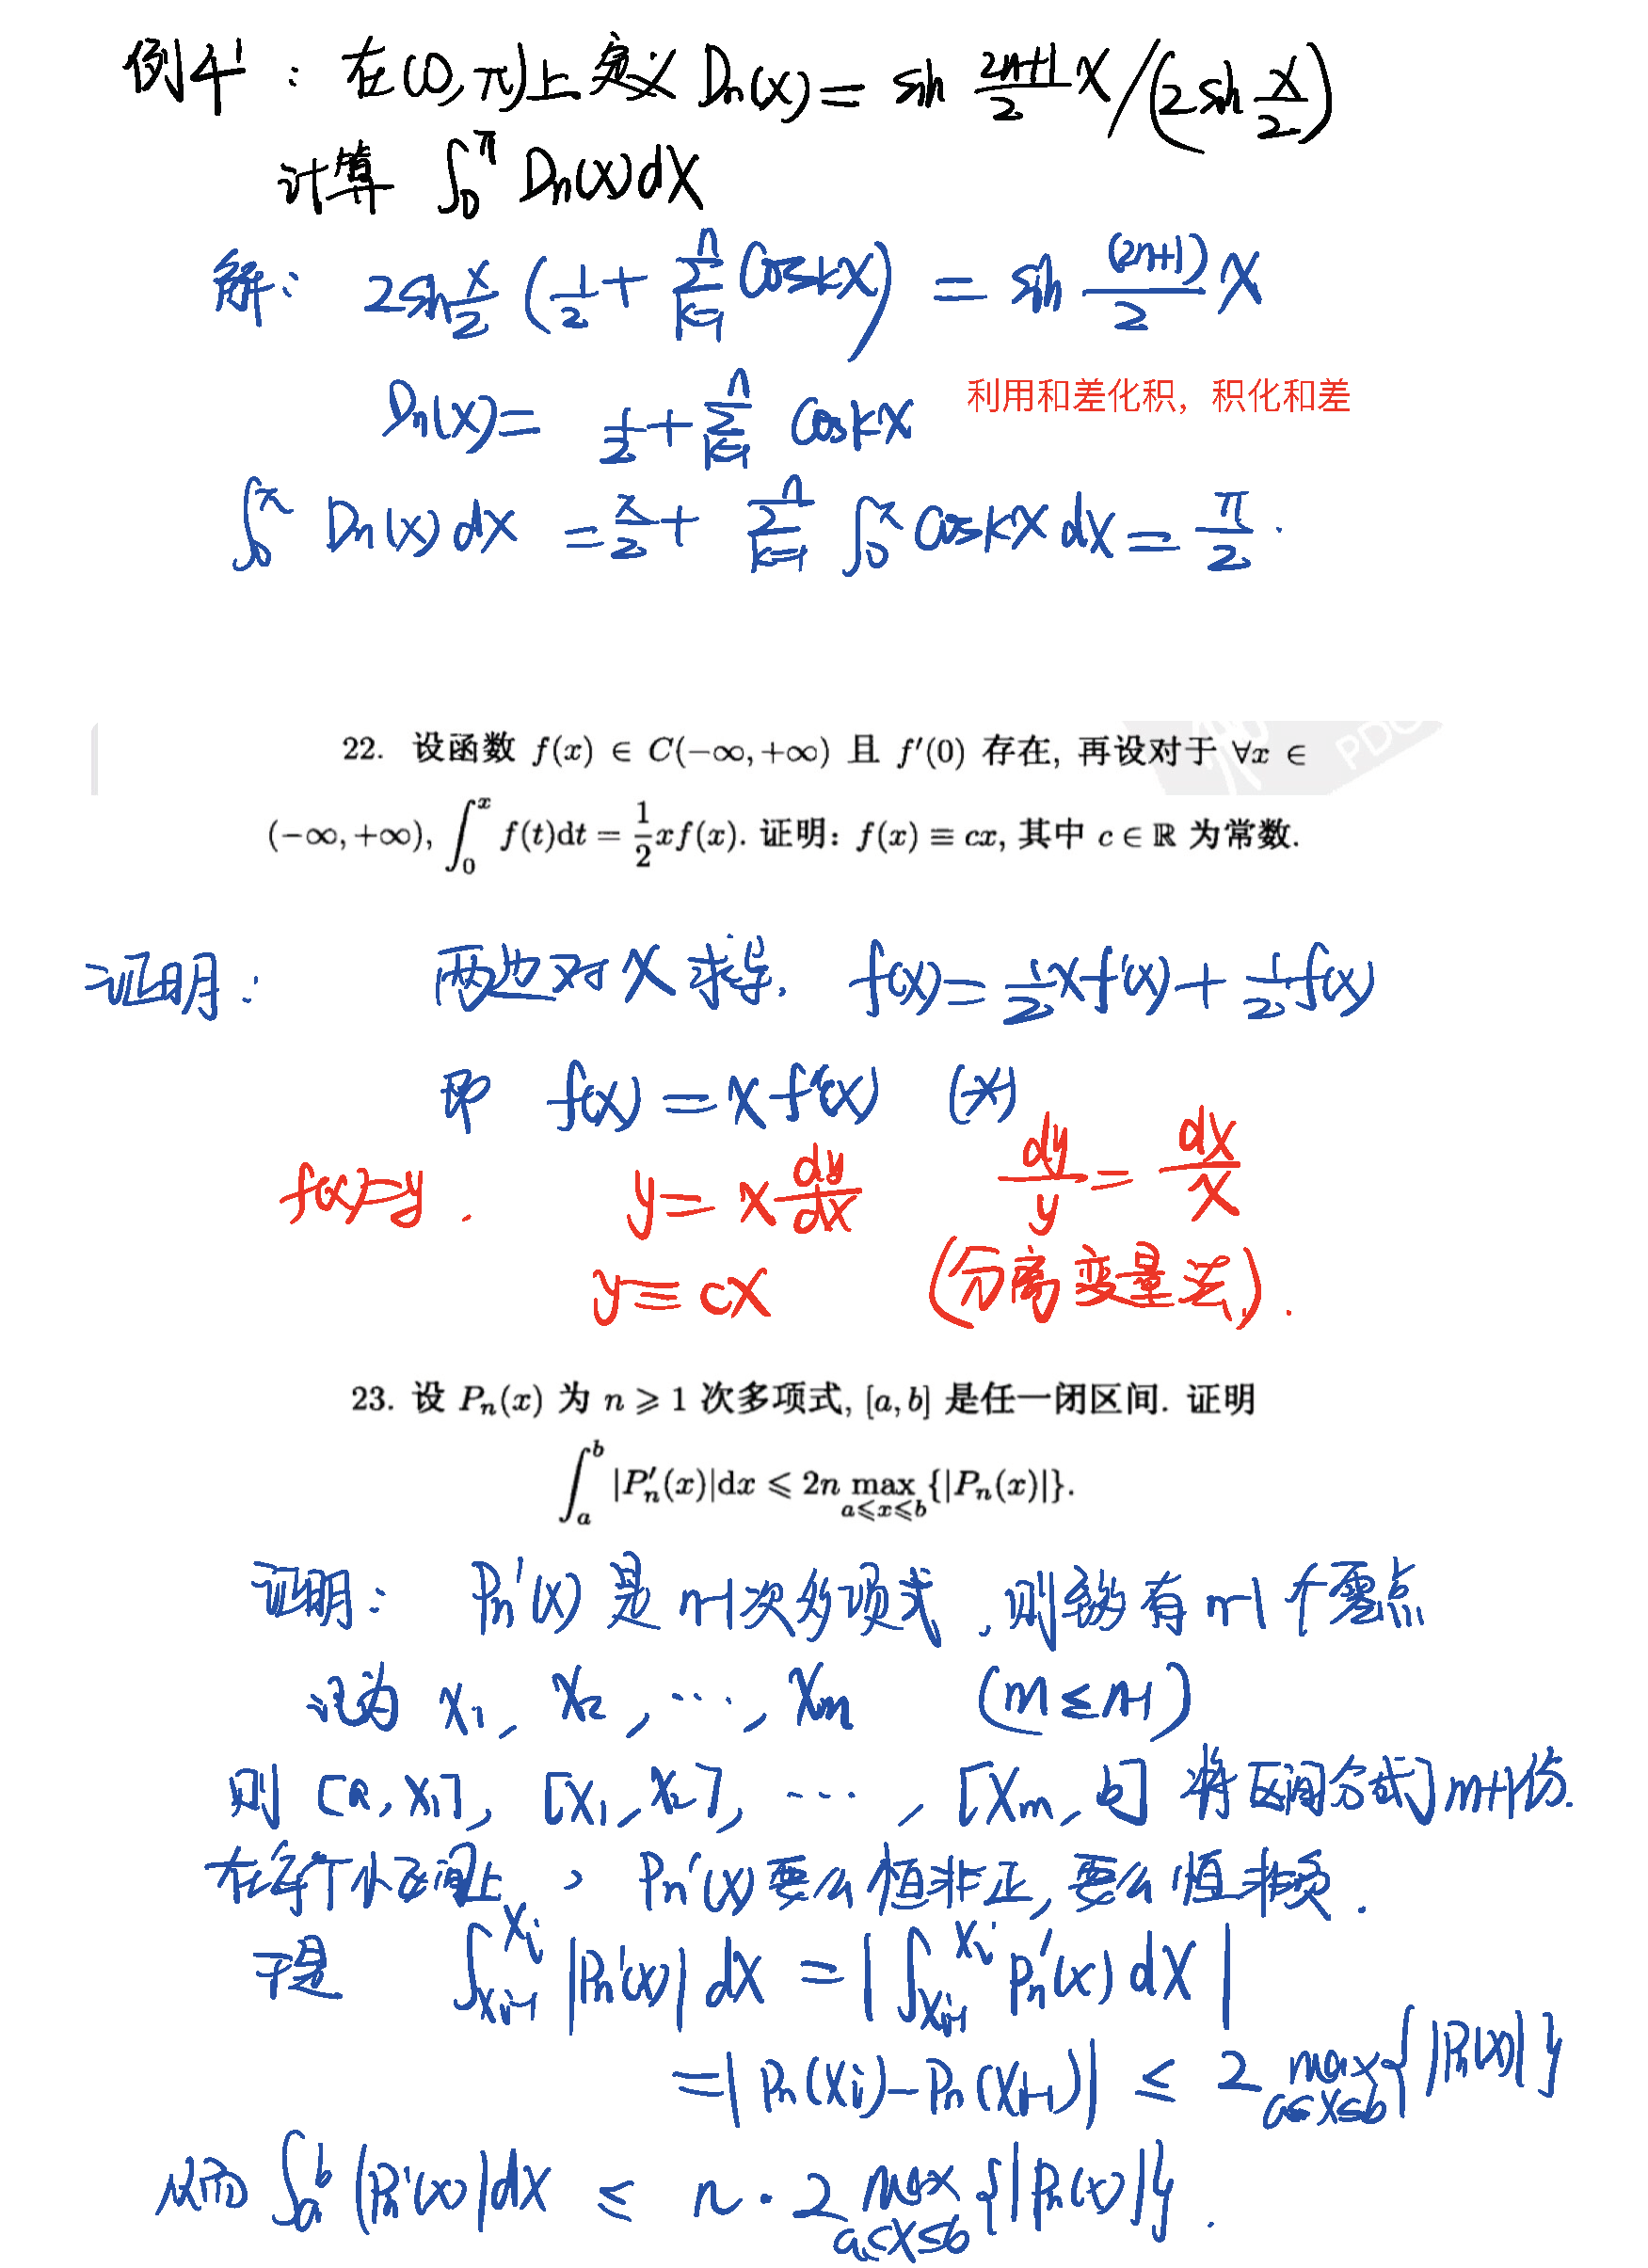 例4' : 在(0,π)上定义 Dn(x) = sin (2n+1)/2 x / (2sin x/2)
计算 ∫_0^π Dn(x)dx
解: 2sin x/2 (1/2 + ∑_{k=1}^n cos kx) = sin (2n+1)/2 x
Dn(x) = 1/2 + ∑_{k=1}^n cos kx 利用和差化积，积化和差
∫_0^π Dn(x)dx = π/2 + ∑_{k=1}^n ∫_0^π cos kx dx = π/2 .
22. 设函数 f(x) ∈ C(−∞, +∞) 且 f′(0) 存在, 再设对于 ∀x ∈
(−∞, +∞), ∫_0^x f(t)dt = 1/2 xf(x). 证明: f(x) ≡ cx, 其中 c ∈ ℝ 为常数.
证明: 两边对 x 求导. f(x) = 1/2 x f'(x) + 1/2 f(x)
即 f(x) = x f'(x) (*)
f(x)=y . y = x dy/dx dy/y = dx/x
y ≡ cx (分离变量法).
23. 设 Pn(x) 为 n ⩾ 1 次多项式, [a, b] 是任一闭区间. 证明
∫_a^b |P′n(x)|dx ⩽ 2n max_{a⩽x⩽b} {|Pn(x)|}.
证明: Pn'(x) 是 n-1 次多项式, 则至多有 n-1 个零点
记为 x1, x2, ⋯, xm (m ≤ n-1)
则 [a, x1], [x1, x2], ⋯, [xm, b] 将区间分成 m+1 份.
在每个小区间上, Pn'(x) 要么恒非正, 要么恒非负.
于是 ∫_{xi-1}^{xi} |Pn'(x)| dx = |∫_{xi-1}^{xi} Pn'(x) dx|
= |Pn(xi) - Pn(xi-1)| ≤ 2 max_{a≤x≤b} {|Pn(x)|}
从而 ∫_a^b |Pn'(x)|dx ≤ n · 2 max_{a≤x≤b} {|Pn(x)|}.